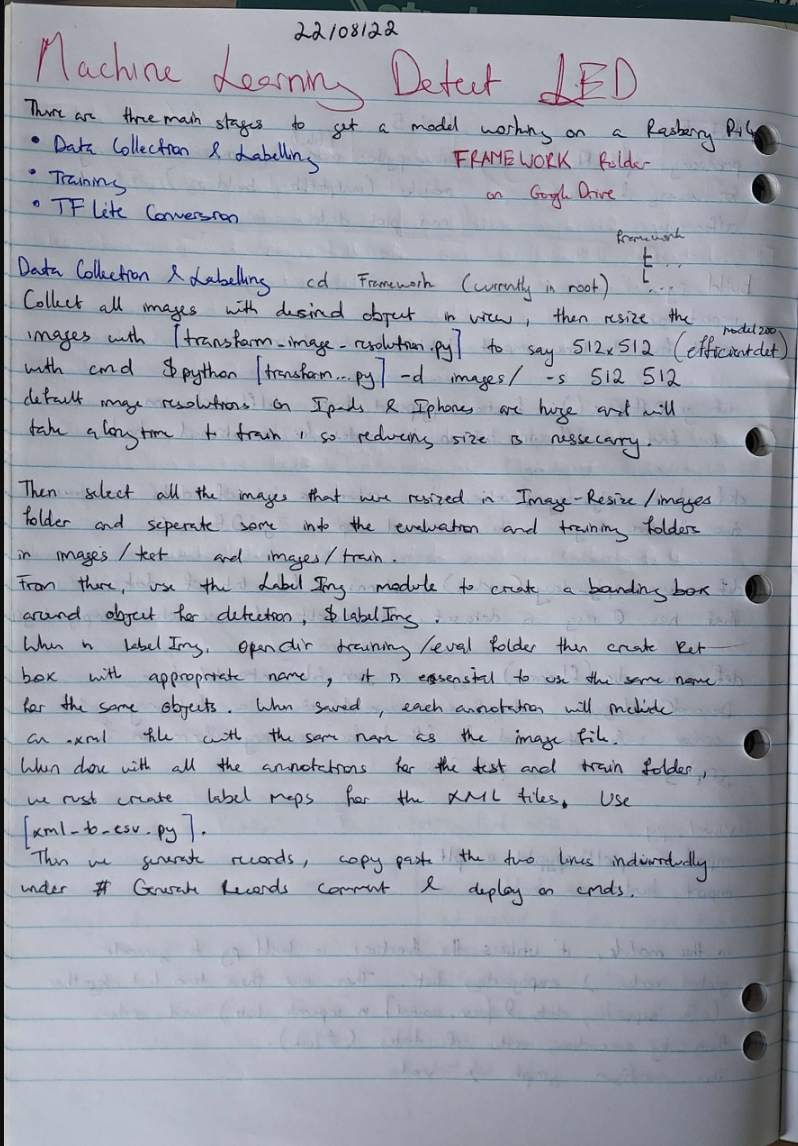 22/08/22
Machine Learning Detect LED
There are three main stages to get a model working on a Rasberry Pi 4
• Data Collection & Labelling
FRAMEWORK Folder
• Training
on Google Drive
• TF Lite Conversion
framework
Data Collection & Labelling cd Framework (currently in root)
Collect all images with desired object in view, then resize the
images with [transform-image-resolution.py] to say 512x512 (efficientdet)
with cmd $python [transform...py] -d images/ -s 512 512
default image resolutions on Ipads & Iphones are huge and will
take a long time to train, so reducing size is nessecarry.
Then select all the images that were resized in Image-Resize/images
folder and seperate some into the evaluation and training folders
in images/test and images/train.
From there, use the Label Img module to create a bounding box
around object for detection, $ Label Img.
When in Label Img, open dir training/eval folder then create Rect
box with appropriate name, it is essenstal to use the same name
for the same objects. When saved, each annotation will include
an .xml file with the same name as the image file.
When done with all the annotations for the test and train folder,
we must create label maps for the XML files. Use
[xml-to-csv.py].
Then we generate records, copy paste the two lines individually
under # Generate Records comment & deploy on cmds.